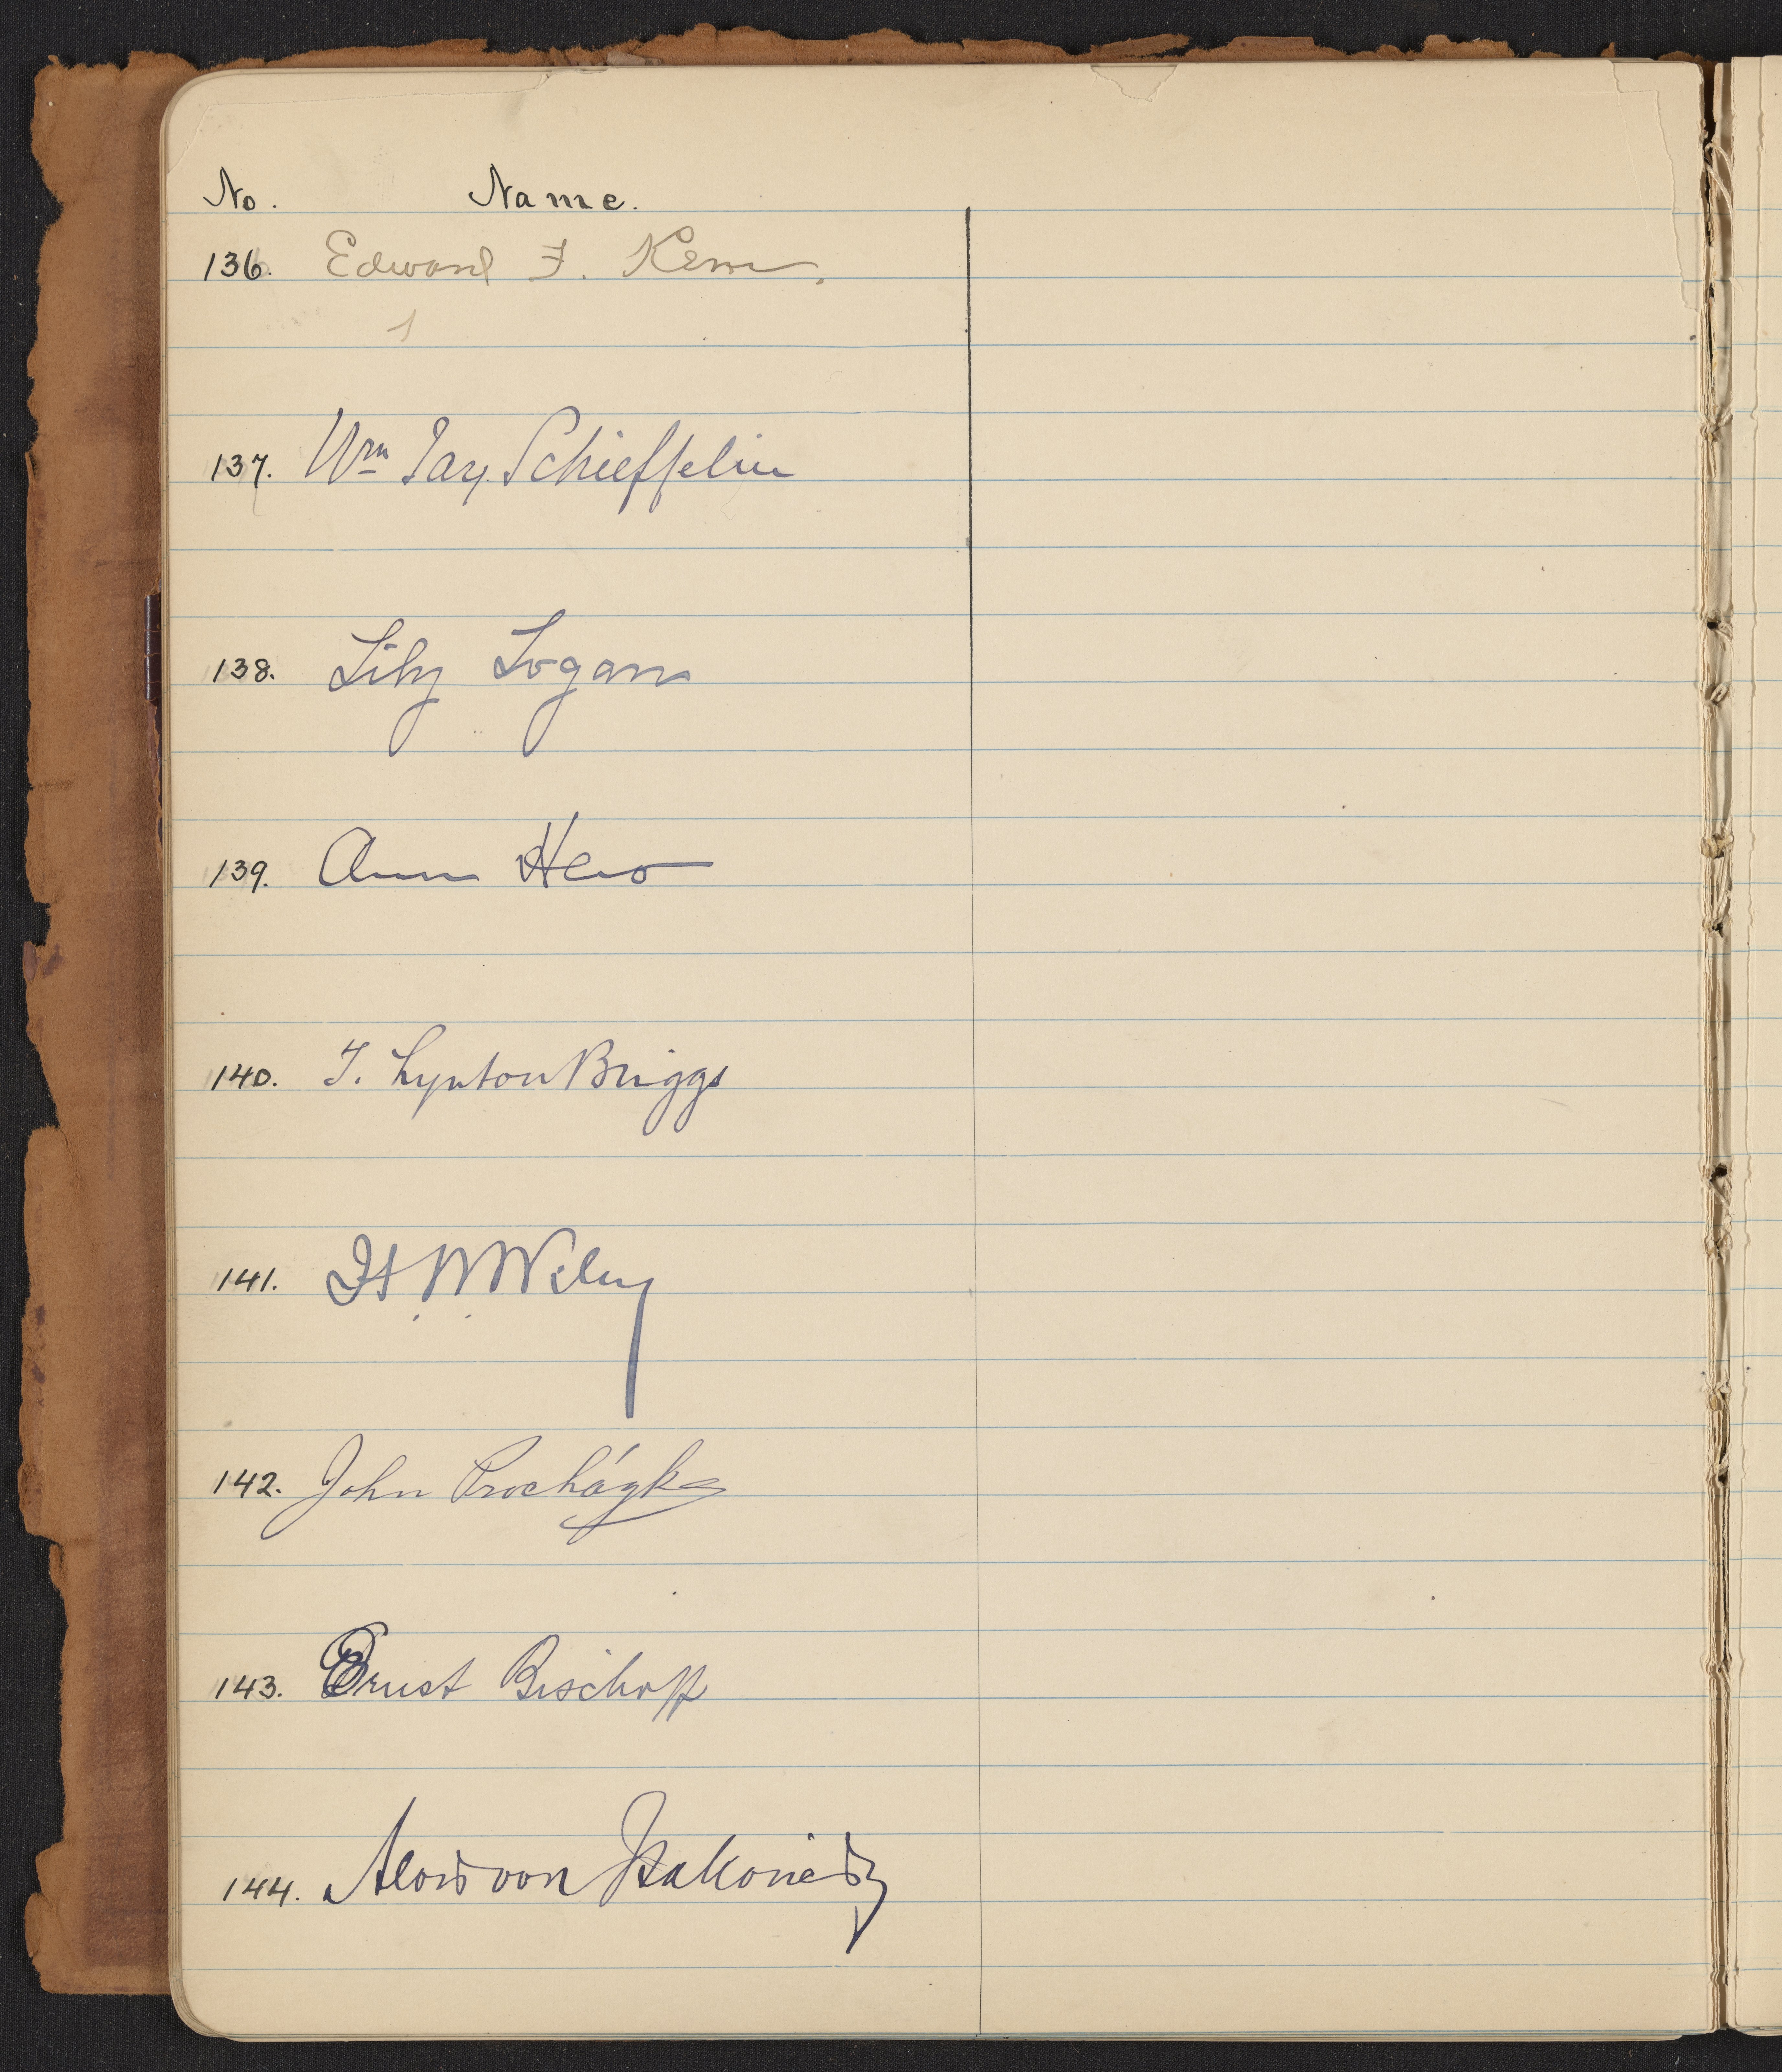 No. Name.
136. Edward F. Kern.
137. Wm Jay Schieffelin
138. Lily Logan
139. Ann Hero
140. T. Lynton Briggs
141. H. W. Wiley
142. John Procházka
143. Ernst Bischoff
144. Alois von Isakovics